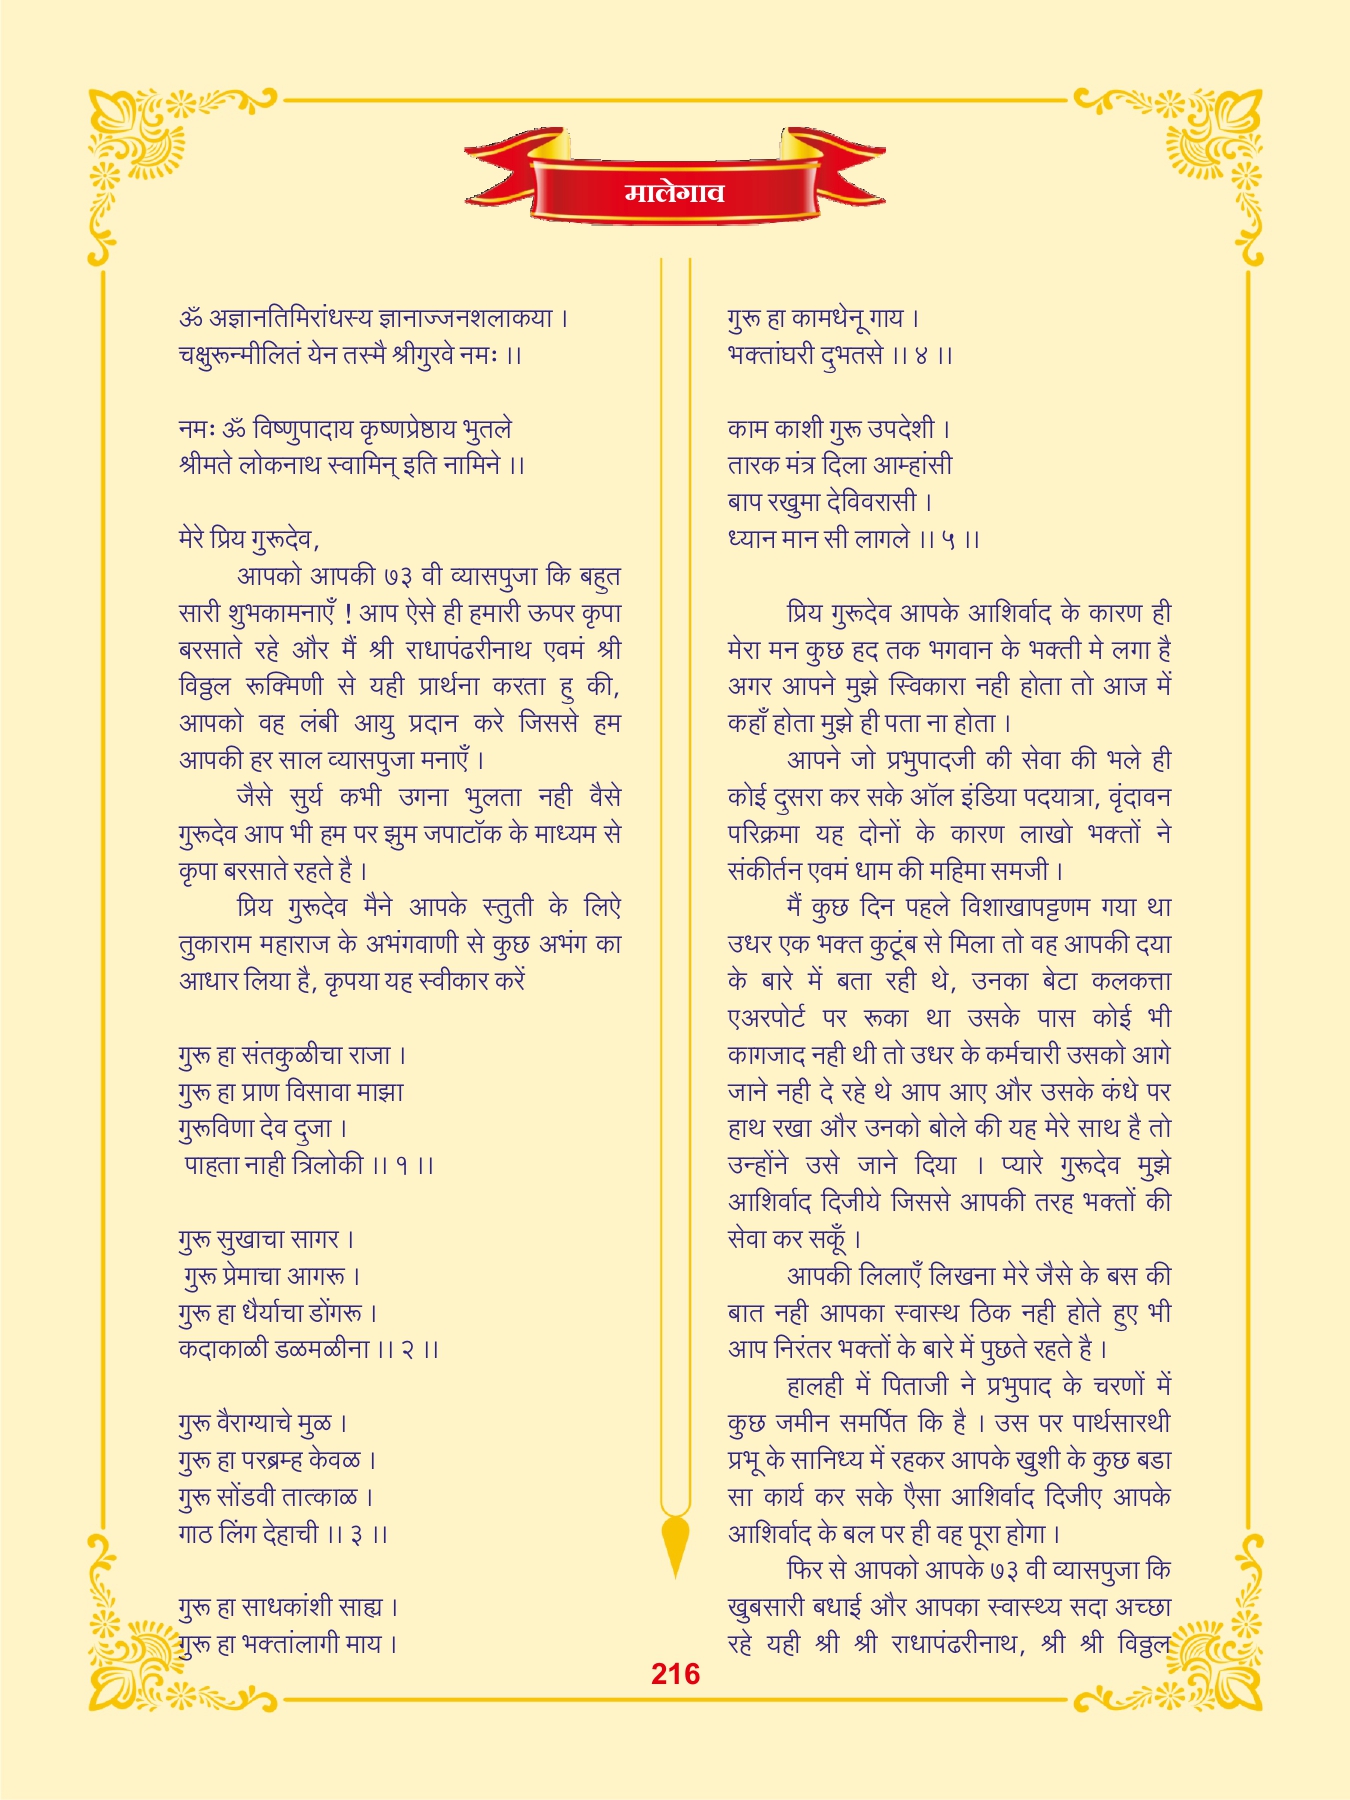 मालेगाव
ॐ अज्ञानतिमिरांधस्य ज्ञानाज्जनशलाकया ।
चक्षुरून्मीलितं येन तस्मै श्रीगुरवे नमः ।।
नमः ॐ विष्णुपादाय कृष्णप्रेष्ठाय भुतले
श्रीमते लोकनाथ स्वामिन् इति नामिने ।।
मेरे प्रिय गुरूदेव,
आपको आपकी ७३ वी व्यासपुजा कि बहुत
सारी शुभकामनाएँ ! आप ऐसे ही हमारी ऊपर कृपा
बरसाते रहे और मैं श्री राधापंढरीनाथ एवमं श्री
विठ्ठल रूक्मिणी से यही प्रार्थना करता हु की,
आपको वह लंबी आयु प्रदान करे जिससे हम
आपकी हर साल व्यासपुजा मनाएँ ।
जैसे सुर्य कभी उगना भुलता नही वैसे
गुरूदेव आप भी हम पर झुम जपाटॉक के माध्यम से
कृपा बरसाते रहते है ।
प्रिय गुरूदेव मैने आपके स्तुती के लिऐ
तुकाराम महाराज के अभंगवाणी से कुछ अभंग का
आधार लिया है, कृपया यह स्वीकार करें
गुरू हा संतकुळीचा राजा ।
गुरू हा प्राण विसावा माझा
गुरूविणा देव दुजा ।
पाहता नाही त्रिलोकी ।। १ ।।
गुरू सुखाचा सागर ।
गुरू प्रेमाचा आगरू ।
गुरू हा धैर्याचा डोंगरू ।
कदाकाळी डळमळीना ।। २ ।।
गुरू वैराग्याचे मुळ ।
गुरू हा परब्रम्ह केवळ ।
गुरू सोंडवी तात्काळ ।
गाठ लिंग देहाची ।। ३ ।।
गुरू हा साधकांशी साह्य ।
गुरू हा भक्तांलागी माय ।
गुरू हा कामधेनू गाय ।
भक्तांघरी दुभतसे ।। ४ ।।
काम काशी गुरू उपदेशी ।
तारक मंत्र दिला आम्हांसी
बाप रखुमा देविवरासी ।
ध्यान मान सी लागले ।। ५ ।।
प्रिय गुरूदेव आपके आशिर्वाद के कारण ही
मेरा मन कुछ हद तक भगवान के भक्ती मे लगा है
अगर आपने मुझे स्विकारा नही होता तो आज में
कहाँ होता मुझे ही पता ना होता ।
आपने जो प्रभुपादजी की सेवा की भले ही
कोई दुसरा कर सके ऑल इंडिया पदयात्रा, वृंदावन
परिक्रमा यह दोनों के कारण लाखो भक्तों ने
संकीर्तन एवमं धाम की महिमा समजी ।
मैं कुछ दिन पहले विशाखापट्टणम गया था
उधर एक भक्त कुटूंब से मिला तो वह आपकी दया
के बारे में बता रही थे, उनका बेटा कलकत्ता
एअरपोर्ट पर रूका था उसके पास कोई भी
कागजाद नही थी तो उधर के कर्मचारी उसको आगे
जाने नही दे रहे थे आप आए और उसके कंधे पर
हाथ रखा और उनको बोले की यह मेरे साथ है तो
उन्होंने उसे जाने दिया । प्यारे गुरूदेव मुझे
आशिर्वाद दिजीये जिससे आपकी तरह भक्तों की
सेवा कर सकूँ ।
आपकी लिलाएँ लिखना मेरे जैसे के बस की
बात नही आपका स्वास्थ ठिक नही होते हुए भी
आप निरंतर भक्तों के बारे में पुछते रहते है ।
हालही में पिताजी ने प्रभुपाद के चरणों में
कुछ जमीन समर्पित कि है । उस पर पार्थसारथी
प्रभू के सानिध्य में रहकर आपके खुशी के कुछ बडा
सा कार्य कर सके एैसा आशिर्वाद दिजीए आपके
आशिर्वाद के बल पर ही वह पूरा होगा ।
फिर से आपको आपके ७३ वी व्यासपुजा कि
खुबसारी बधाई और आपका स्वास्थ्य सदा अच्छा
रहे यही श्री श्री राधापंढरीनाथ, श्री श्री विठ्ठल
216